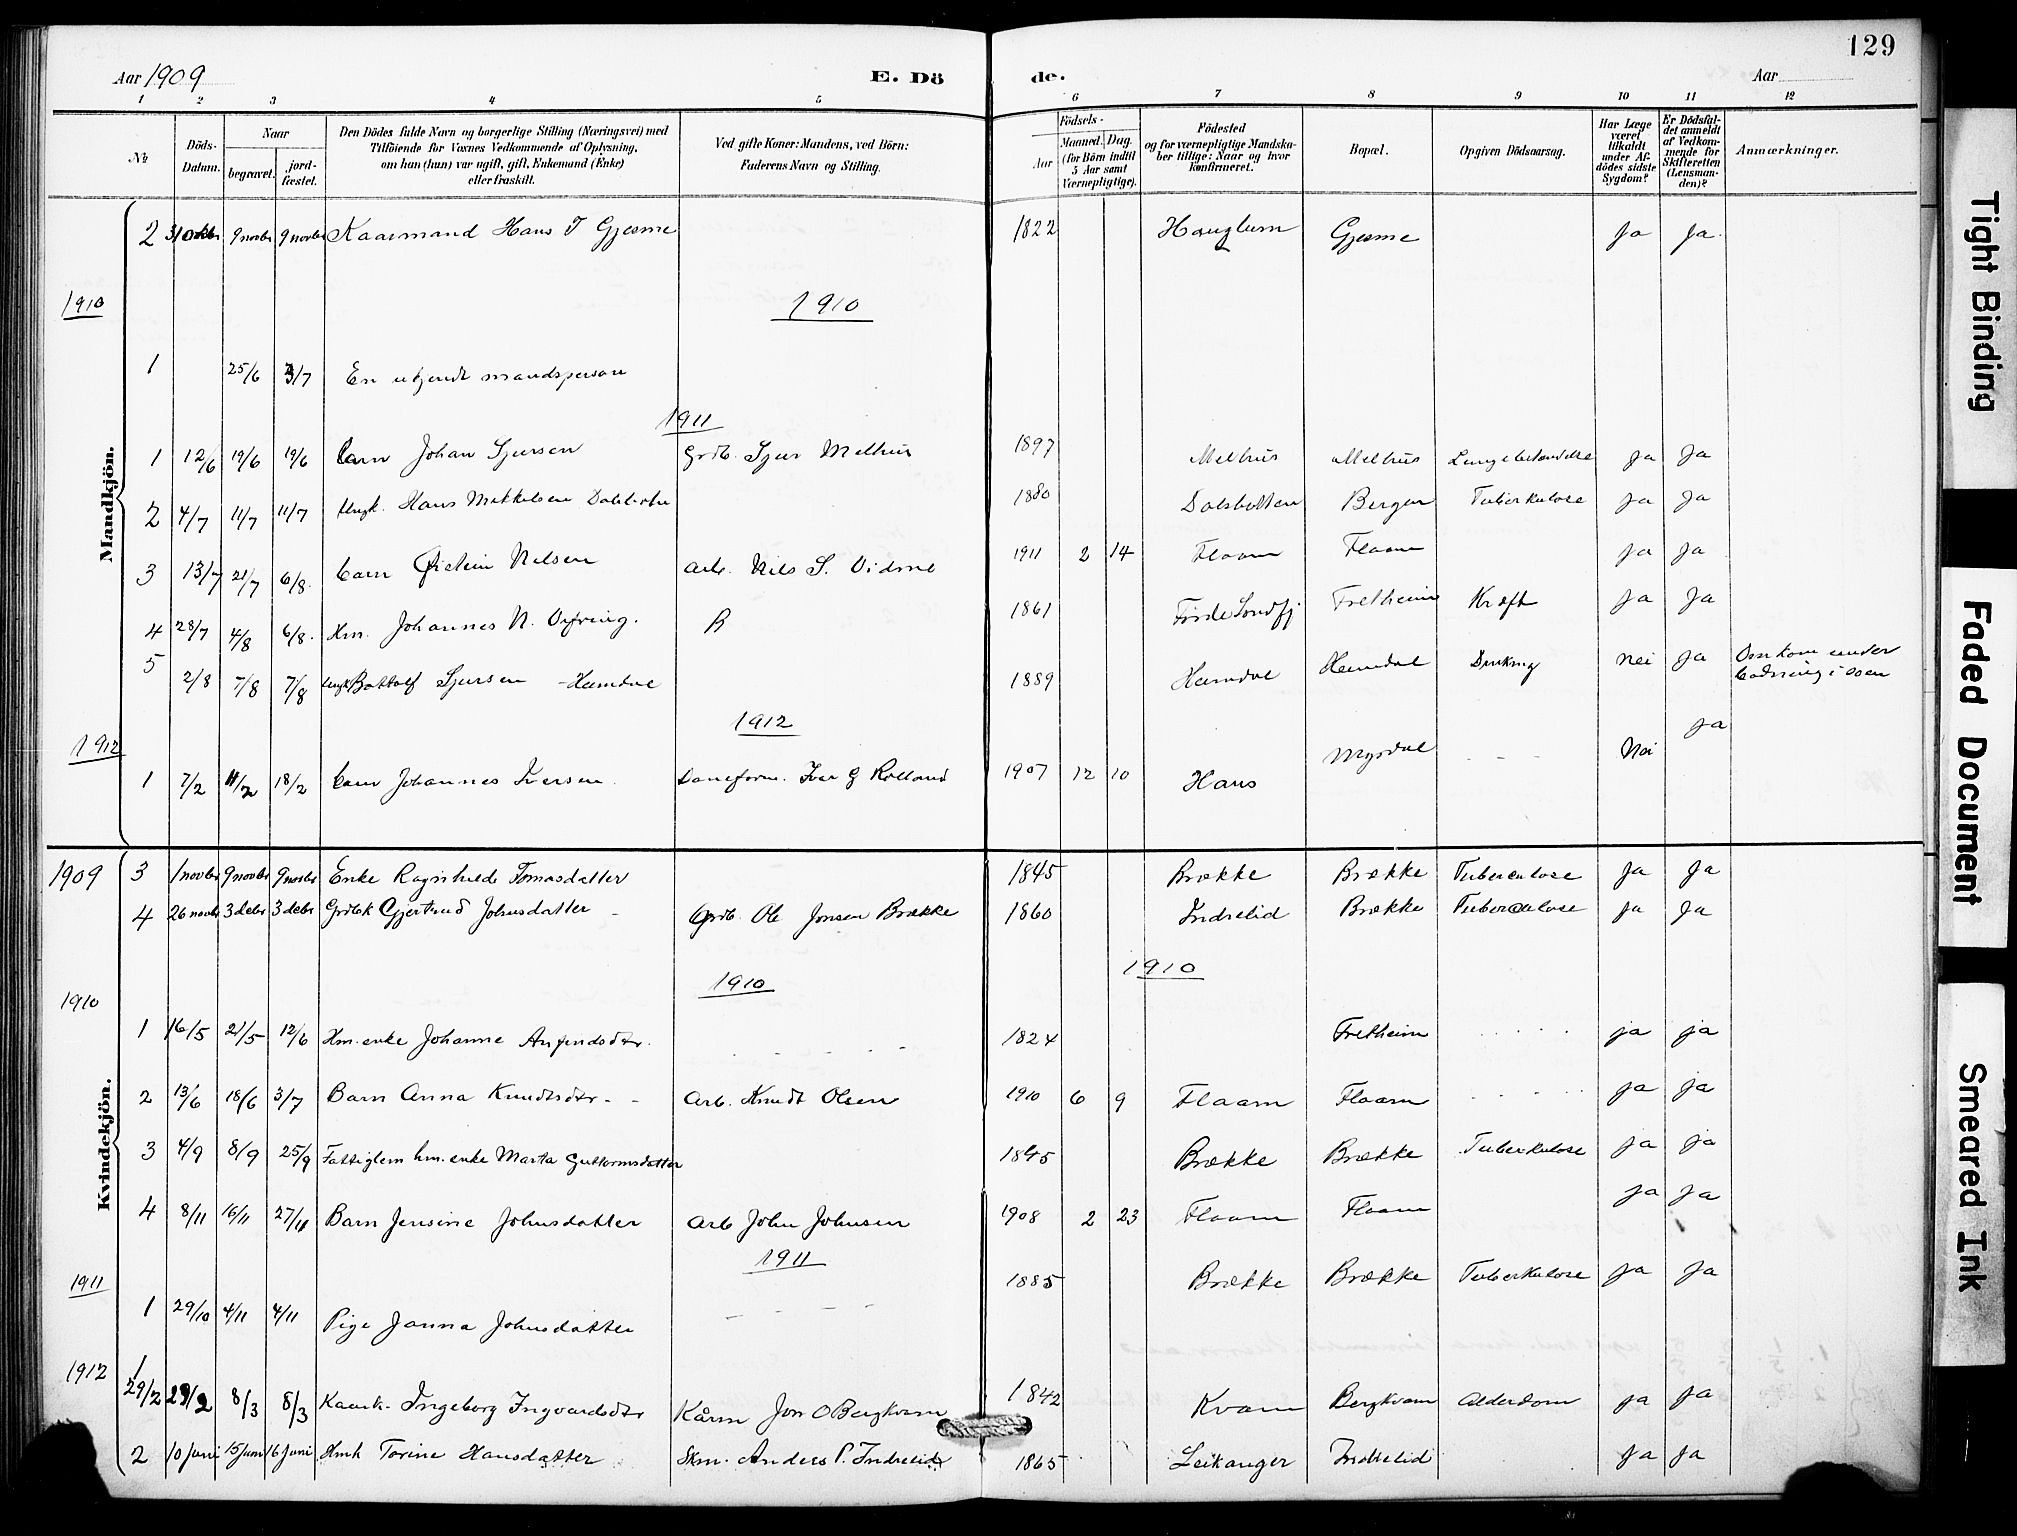 129
Aar 1909 E. Dö de. Aar
1 2 3 4 5 6 7 8 9 10 11 12
No
Döds-Datum.
Naar
begravet.
jord-fæstet.
Den Dödes fulde Navn og borgerlige Stilling (Næringsvei) med
Tilföiende for Voxnes Vedkommende af Oplysning,
om han (hun) var ugift, gift, Enkemand (Enke)
eller fraskilt.
Ved gifte Koner: Mandens, ved Börn:
Faderens Navn og Stilling.
Födsels-
Aar
Maaned. Dag.
(for Börn indtil
5 Aar samt
Værnepligtige).
Födested
og for værnepligtige Mandska-
ber tillige: Naar og hvor
konfirmeret.
Bopæl.
Opgiven Dödsaarsag.
Har Læge
været
tilkaldt
under Af-
dödes sidste
Sygdom?
Er Dödsfal-
det anmeldt
af Vedkom-
mende for
Skifteretten
(Lensman-
den)?
Anmærkninger.
Mandkjön.
2 9 novbr 9 novbr Kaarmand Hans T Gjesme 1822 Gjesme Ja Ja.
1910 1910
1 25/6 3/7 En ukjendt mandsperson
1911
1 12/6 19/6 19/6 Barn Johan Sjursen Grdb. Sjur Melhus 1897 Melhus Melhus Lungebetændelse Ja Ja
2 4/7 11/7 11/7 Ungk. Hans Mikkelsen 1880 Dalsbotten Bergen Tuberkulose Ja Ja
3 13/7 21/7 6/8. Barn Øistein Nilsen Arb. Nils S. Vidme 1911 2 14 Flaam Flaam Ja Ja
4 28/7 4/8 6/8. Hm. Johannes N. 1861 Förde Söndfj Fretheim Kræft Ja Ja
5 2/8 7/8 7/8 Ungk Bottolf Sjursen - Hamdal 1889 Hamdal Hamdal Drukning Nei Ja Omkom under
badning i søen
1912 1912
1 7/2 11/2 18/2 Barn Johannes Iversen. Baneform. Ivar G Rolland 1907 12 10 Hans Myrdal - - - Nei Ja
Kvindekjön.
1909 3 1 novbr 9 novbr 9 novbr Enke Ragnhilde Tomasdatter 1845 Brække Brække Tuberculose Ja Ja
4 26 novbr 3 debr 3 debr Grdbk Gjertrud Johnsdatter - Grdb. Ole Jonsen Brække 1860 Indrelid Brække Tuberculose Ja Ja
1910 1910
1910
1 16/5 21/5 12/6 Hm. enke Johanne Anfindsdtr. 1824 Fretheim ja ja
2 13/6 18/6 3/7 Barn Anna Knudtsdtr - - Arb. Knudt Olsen 1910 6 9 Flaam Flaam ja ja
3 4/9 8/9 25/9 Fattiglem hm. enke Marta Guttormsdatter 1845 Brække Brække Tuberkulose ja ja
4 8/11 16/11 27/11 Barn Jensine Johnsdatter Arb John Johnsen 1908 2 23 Flaam Flaam ja ja
1911
1911
1 29/10 4/11 4/11 Pige Janna Johnsdatter - - - - 1885 Brække Brække Tuberkulose Ja Ja
1912
1 29/2 29/2 8/3 8/3 Kaark. Ingeborg Ingvardsdtr Kårm Jon O Bergkvam 1842 Kvam Bergkvam Alderdom ja ja
2 10 juni 15 juni 16 juni Hmk Torine Hansdatter Hm. Anders P. Indrelid 1865 Leikanger Indrelid Ja Ja
Tight Binding
Faded Document
Smeared Ink